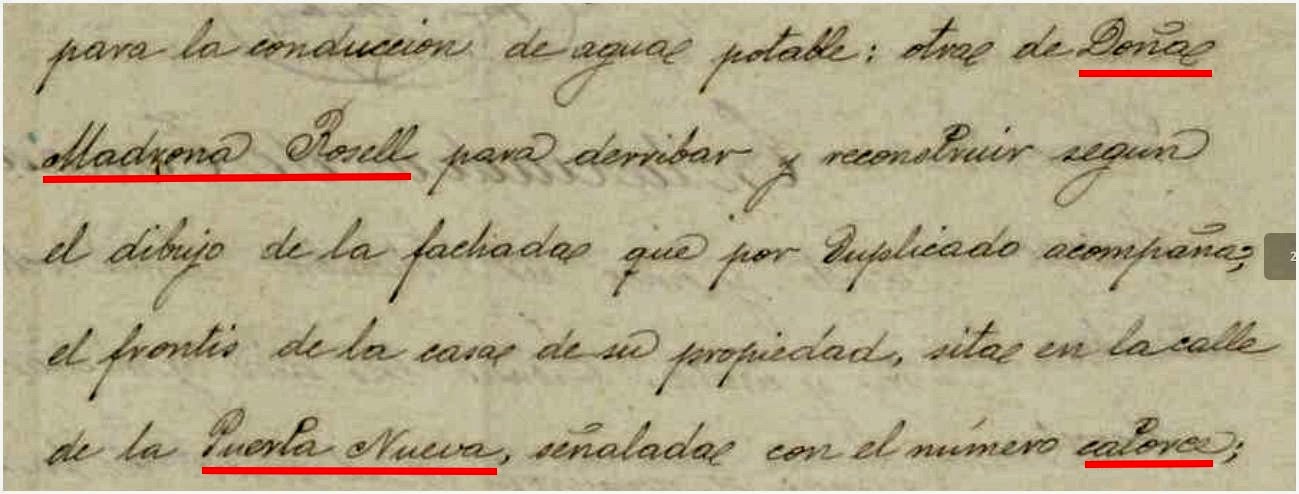 para la conduccion de agua potable: otra de Doña
Madrona Rosell para derribar y reconstruir segun
el dibujo de la fachada que por duplicado acompaña;
el frontis de la casa de su propiedad, sita en la calle
de la Puerta Nueva, señalada con el número catorce;
2